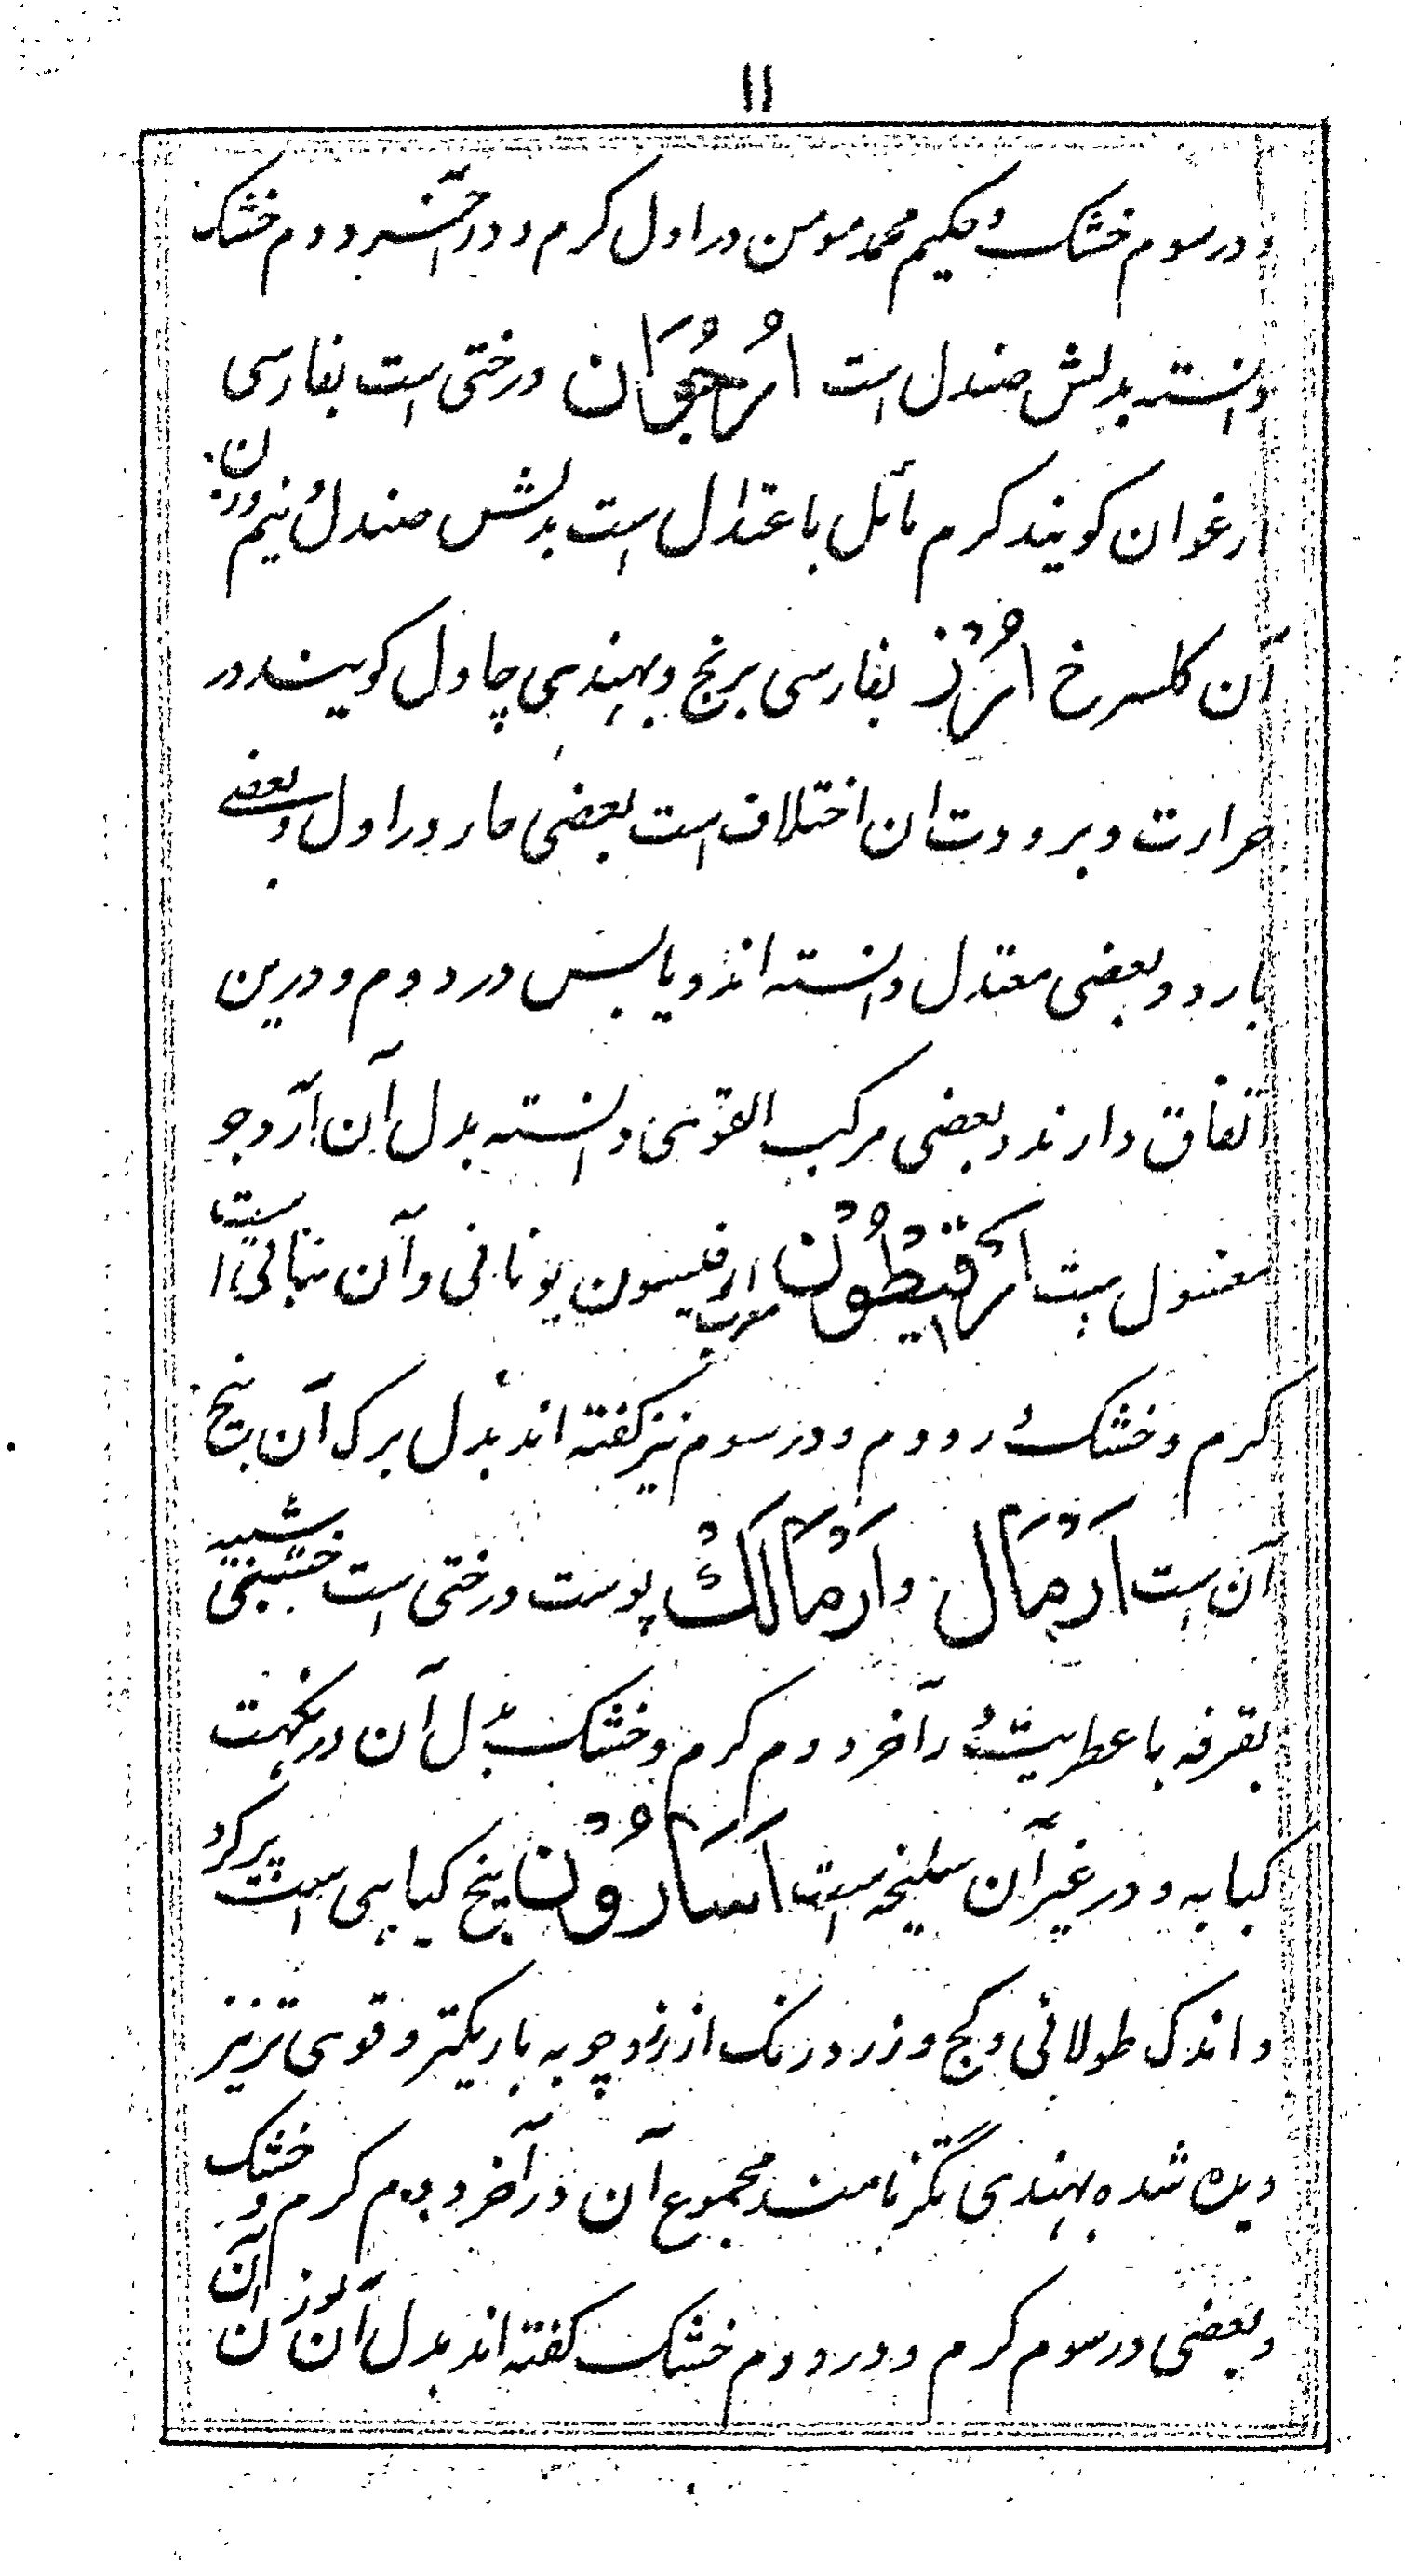 ۱۱
و در سوم خشک و حکیم محمد مومن در اول کرم و در آخر دوم خشک
دانسته بدلش صندل است اُرجُوَان درختی است بفارسی
ارغوان کویند کرم مائل باعتدال است بدلش صندل و نیم وزن
آن کلسرخ اُرُزْ بفارسی برنج و بهندی چاول کویند در
حرارت و برودت ان اختلاف است بعضی حار در اول و بعضی
بارد و بعضی معتدل دانسته اند و یابس در دوم و درین
اتفاق دارند و بعضی مرکب القوی دانسته بدل آن آرد جو
مغسول ست اَرقیطُون معرب ارقیسون یونانی و آن نباتی است
کرم و خشک در دوم و در سوم نیز کفته اند بدل برک آن بیخ
آن ست اَرْمَال و اَرْمَالَکْ پوست درختی است خشبی شبیه
بقرفه با عطریت و در آخر دوم کرم و خشک بدل آن در نکهت
کبابه و در غیر آن سلیخه است اَسَارُوْن بیخ کیاهی است پر کره
و اندک طولانی و کج و زرد رنک از زرد چوبه باریکتر و قوی تر نیز
دیده شده بهندی تگر نامند مجموع آن در آخر دوم کرم و خشک
و بعضی در سوم کرم و در دوم خشک کفته اند بدل آن وزن آن